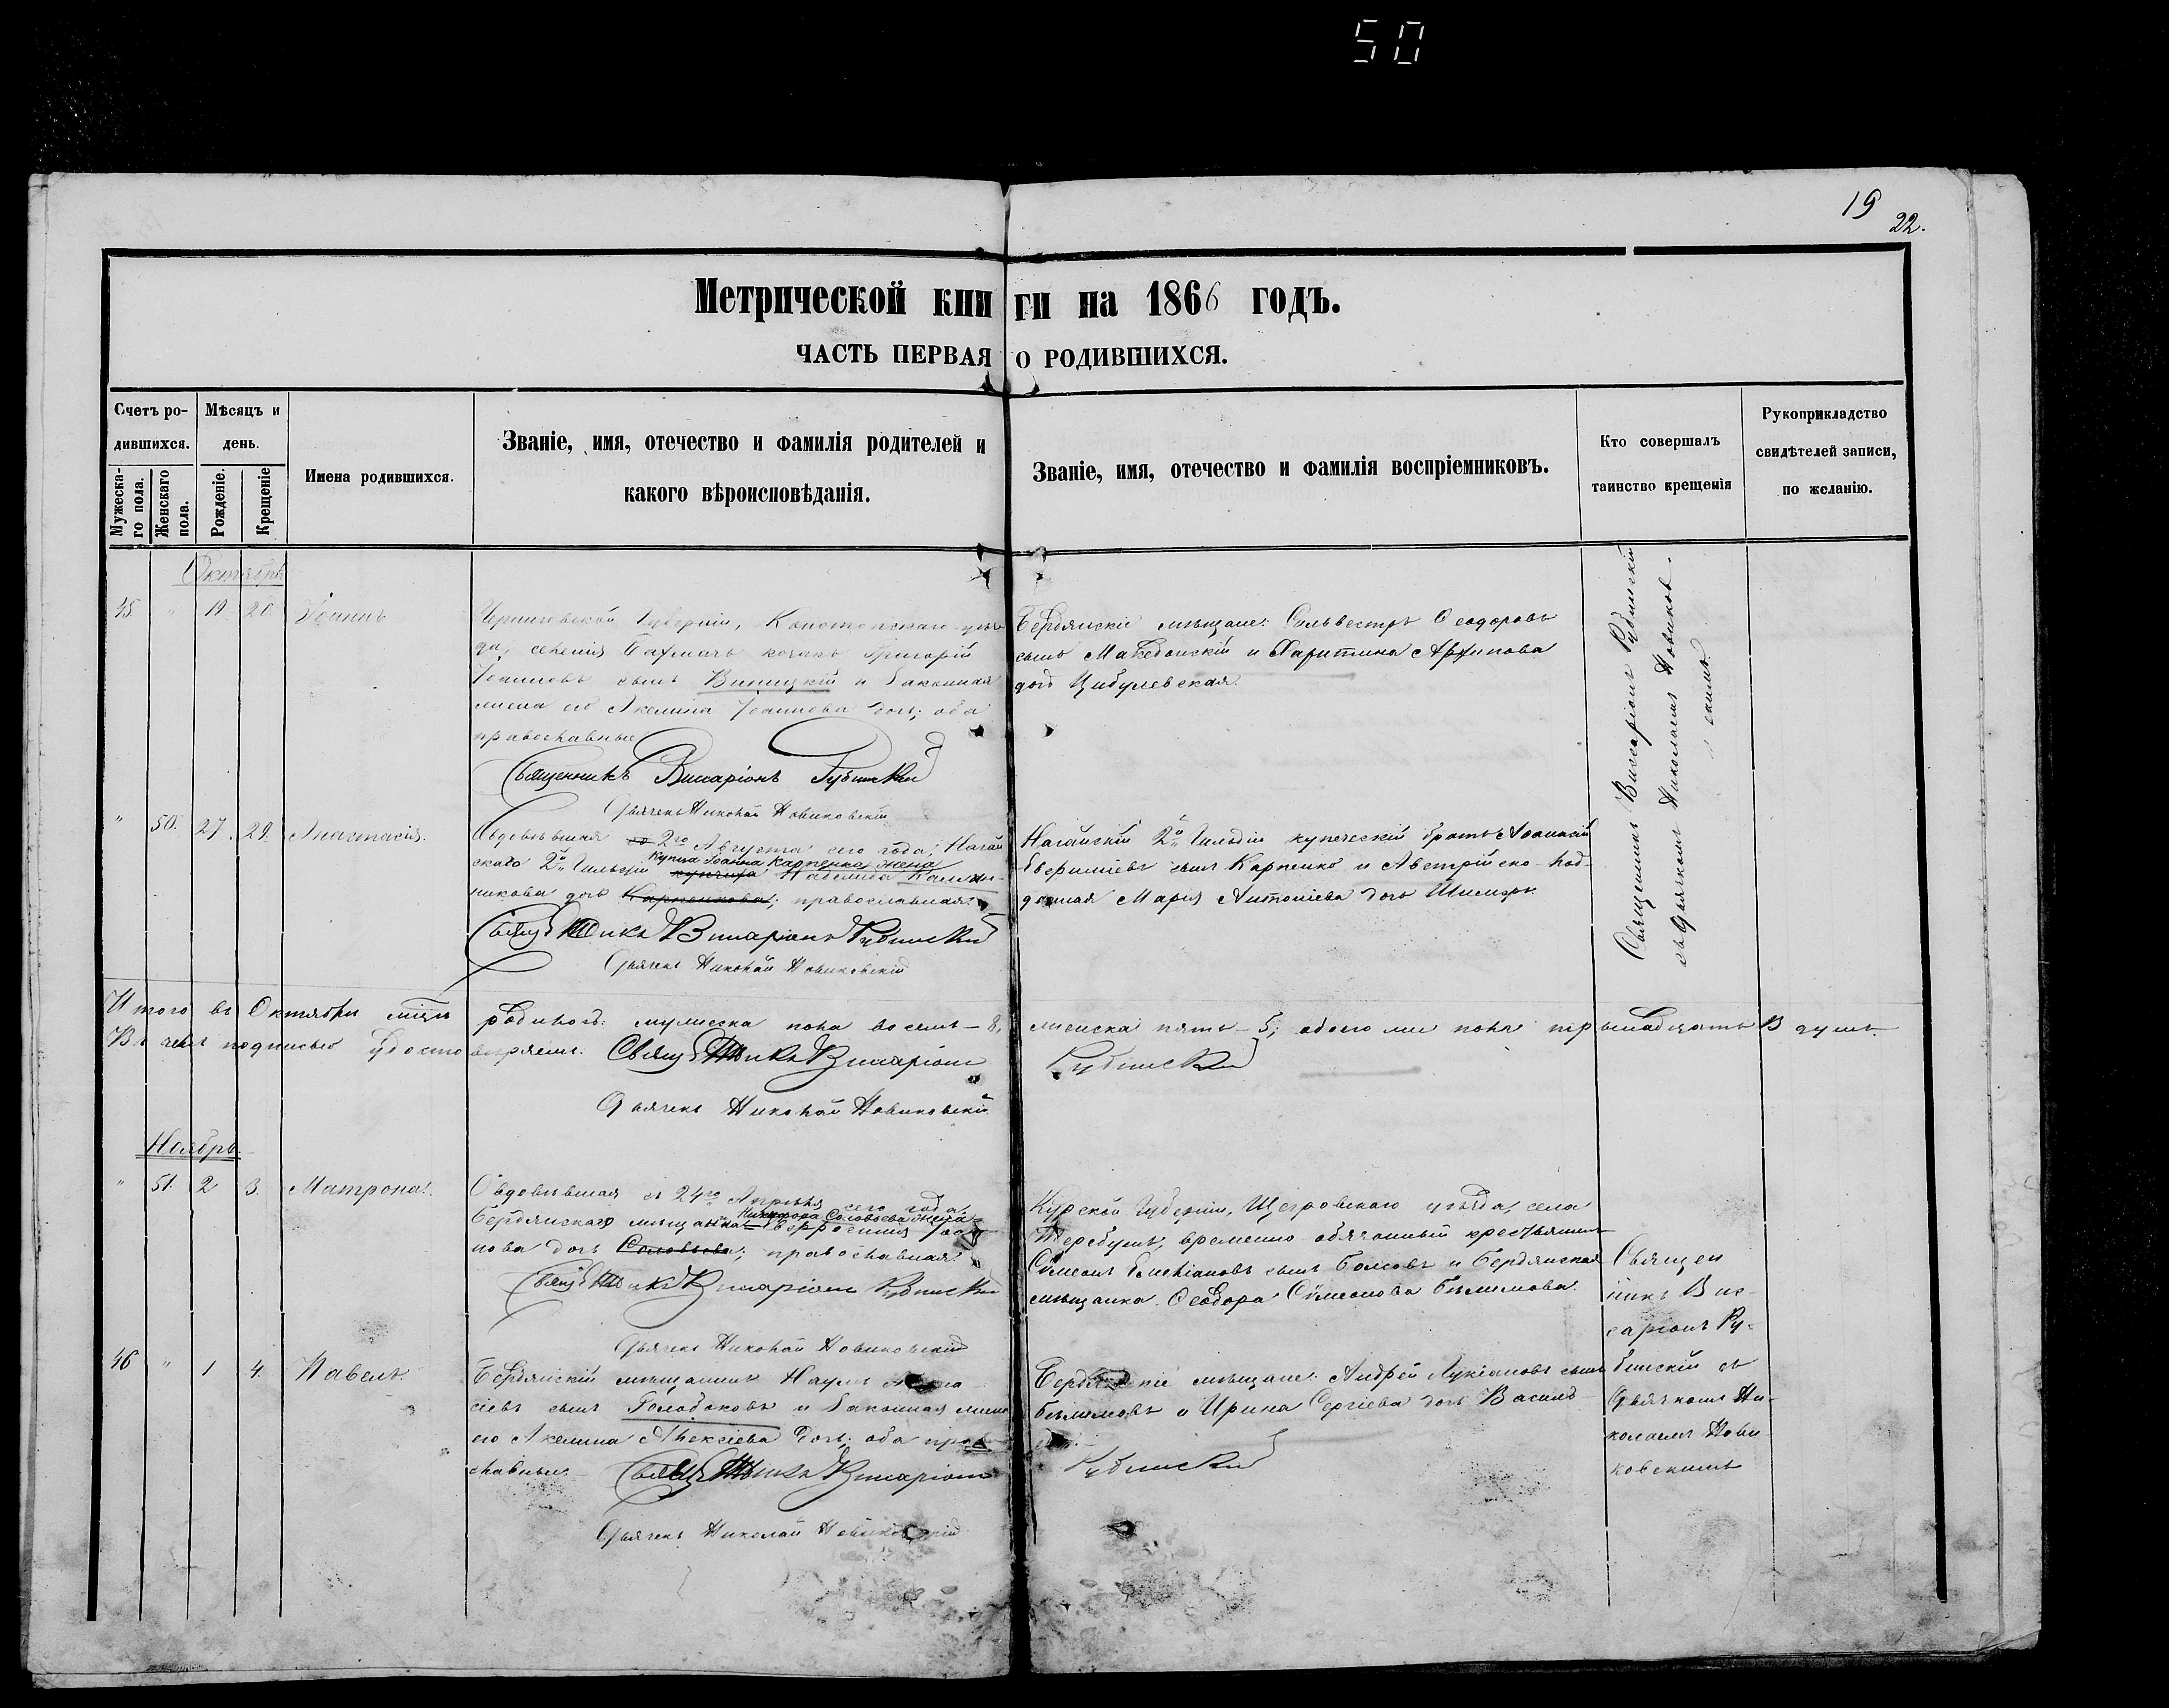 50
19
22.
Метрической книги на 1866 годъ.
ЧАСТЬ ПЕРВАЯ О РОДИВШИХСЯ.
Счетъ ро-
дившихся.
Мужеска-
го пола.
Женскаго
пола.
Мѣсяцъ и
день.
Рожденіе.
Крещеніе
Имена родившихся.
Званіе, имя, отечество и фамилія родителей и
какого вѣроисповѣданія.
Званіе, имя, отечество и фамилія воспріемниковъ.
Кто совершалъ
таинство крещенія
Рукоприкладство
свидѣтелей записи,
по желанію.
Октябрь
45 " 19 20 Іоаннъ
Черниговской Губерніи, Конотопскаго уѣз
да, селенія Бахмачъ козакъ Григорій
Іоанновъ сынъ Виницкій и законная
жена его Акелина Іоаннова дочь; оба
православные
Священникъ Висаріонъ Рубинскій
Дьячекъ Николай Новиковскій
Бердянскіе мѣщане: Сильвестръ Ѳеодоровъ
сынъ Македонскій и Харитина Архипова
дочь Цибулевская.
Священникъ Висаріонъ Рубинскій
съ Дьячкомъ Николаемъ Новиков-
скимъ.
" 50. 27. 29. Анастасія.
Овдовѣвшая 2го Августа сего года, Ногай
скаго 2й Гильдіи купца Іоанна Карпенко жена
купчиха Надежда Калин-
никова дочь Карпенкова; православная.
Священникъ Висаріонъ Рубинскій
Дьячекъ Николай Новиковскій
Ногайскій 2й Гильдіи купеческій братъ Аѳанасій
сынъ Карпенко и Австрійско-под-
данная Марія Антоніева дочь
Итого въ Октябрѣ мѣсяцѣ родилось: мужеска пола восемь - 8, женска пять - 5; обоего же пола тринадцать 13 душъ.
Въ чемъ подписью удостовѣряемъ: Священникъ Висаріонъ Рубинскій
Дьячекъ Николай Новиковскій
Ноябрь.
" 51. 2 3. Матрона.
Овдовѣвшая съ 24го Апрѣля сего года,
Бердянскаго мѣщанина Никифора Соловьева жена
Евфросинія
нова дочь Соловьева; православная.
Священникъ Висаріонъ Рубинскій
Дьячекъ Николай Новиковскій
Курской Губерніи, Щегровскаго уѣзда, села
Теребужъ, временно-обязанный крестьянинъ
Сѵмеонъ сынъ и Бердянская
мѣщанка Ѳеодора Сѵмеонова Бѣлимова.
Священ
никъ Вис-
саріонъ Ру-
бинскій съ
Дьячкомъ Ни-
колаемъ Нови
ковскимъ
46 " 1 4. Павелъ.
Бердянскій мѣщанинъ Наумъ
сіевъ сынъ Голобоковъ и законная жена
его Акелина Алексіева дочь; оба право
славные. Священникъ Висаріонъ Рубинскій
Дьячекъ Николай Новиковскій
Бердянскіе мѣщане: Андрей Лукіановъ сынъ
Бѣлимовъ и Ирина Сергіева дочь Василь